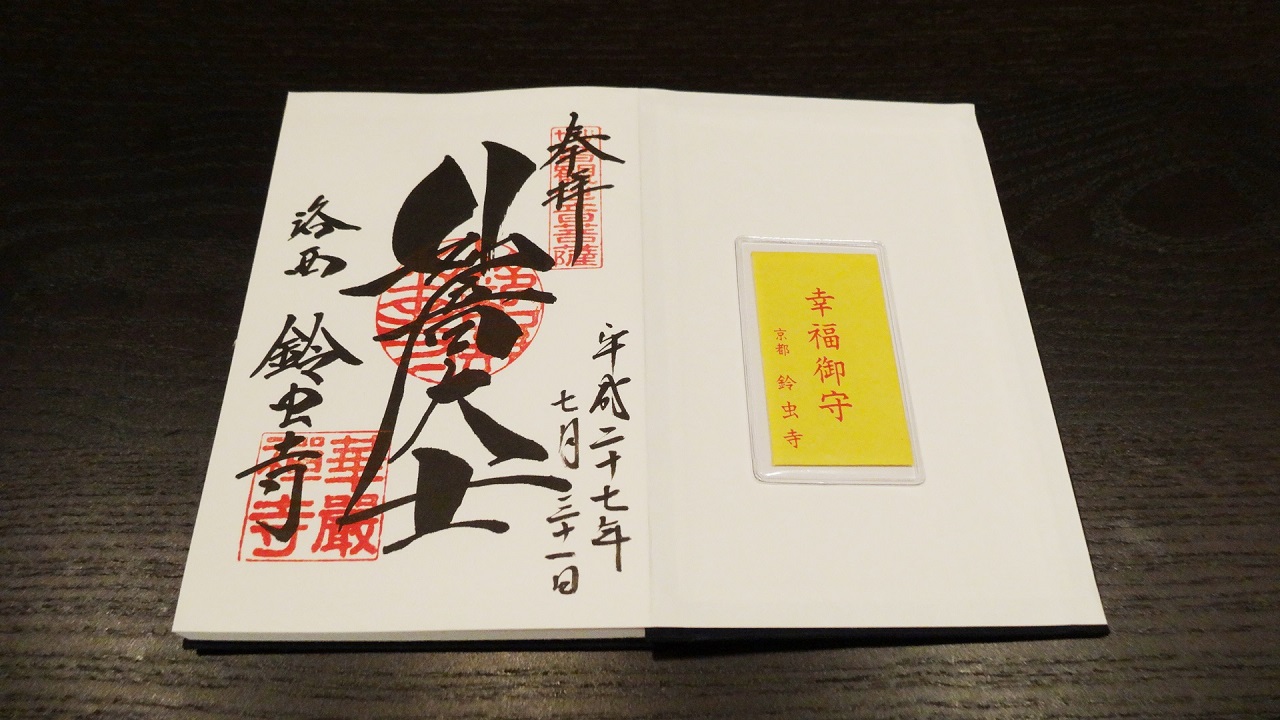 幸福御守
京都 鈴虫寺
奉拝
平成二十七年
七月三十一日
大士
洛西 鈴虫寺
華嚴禪寺